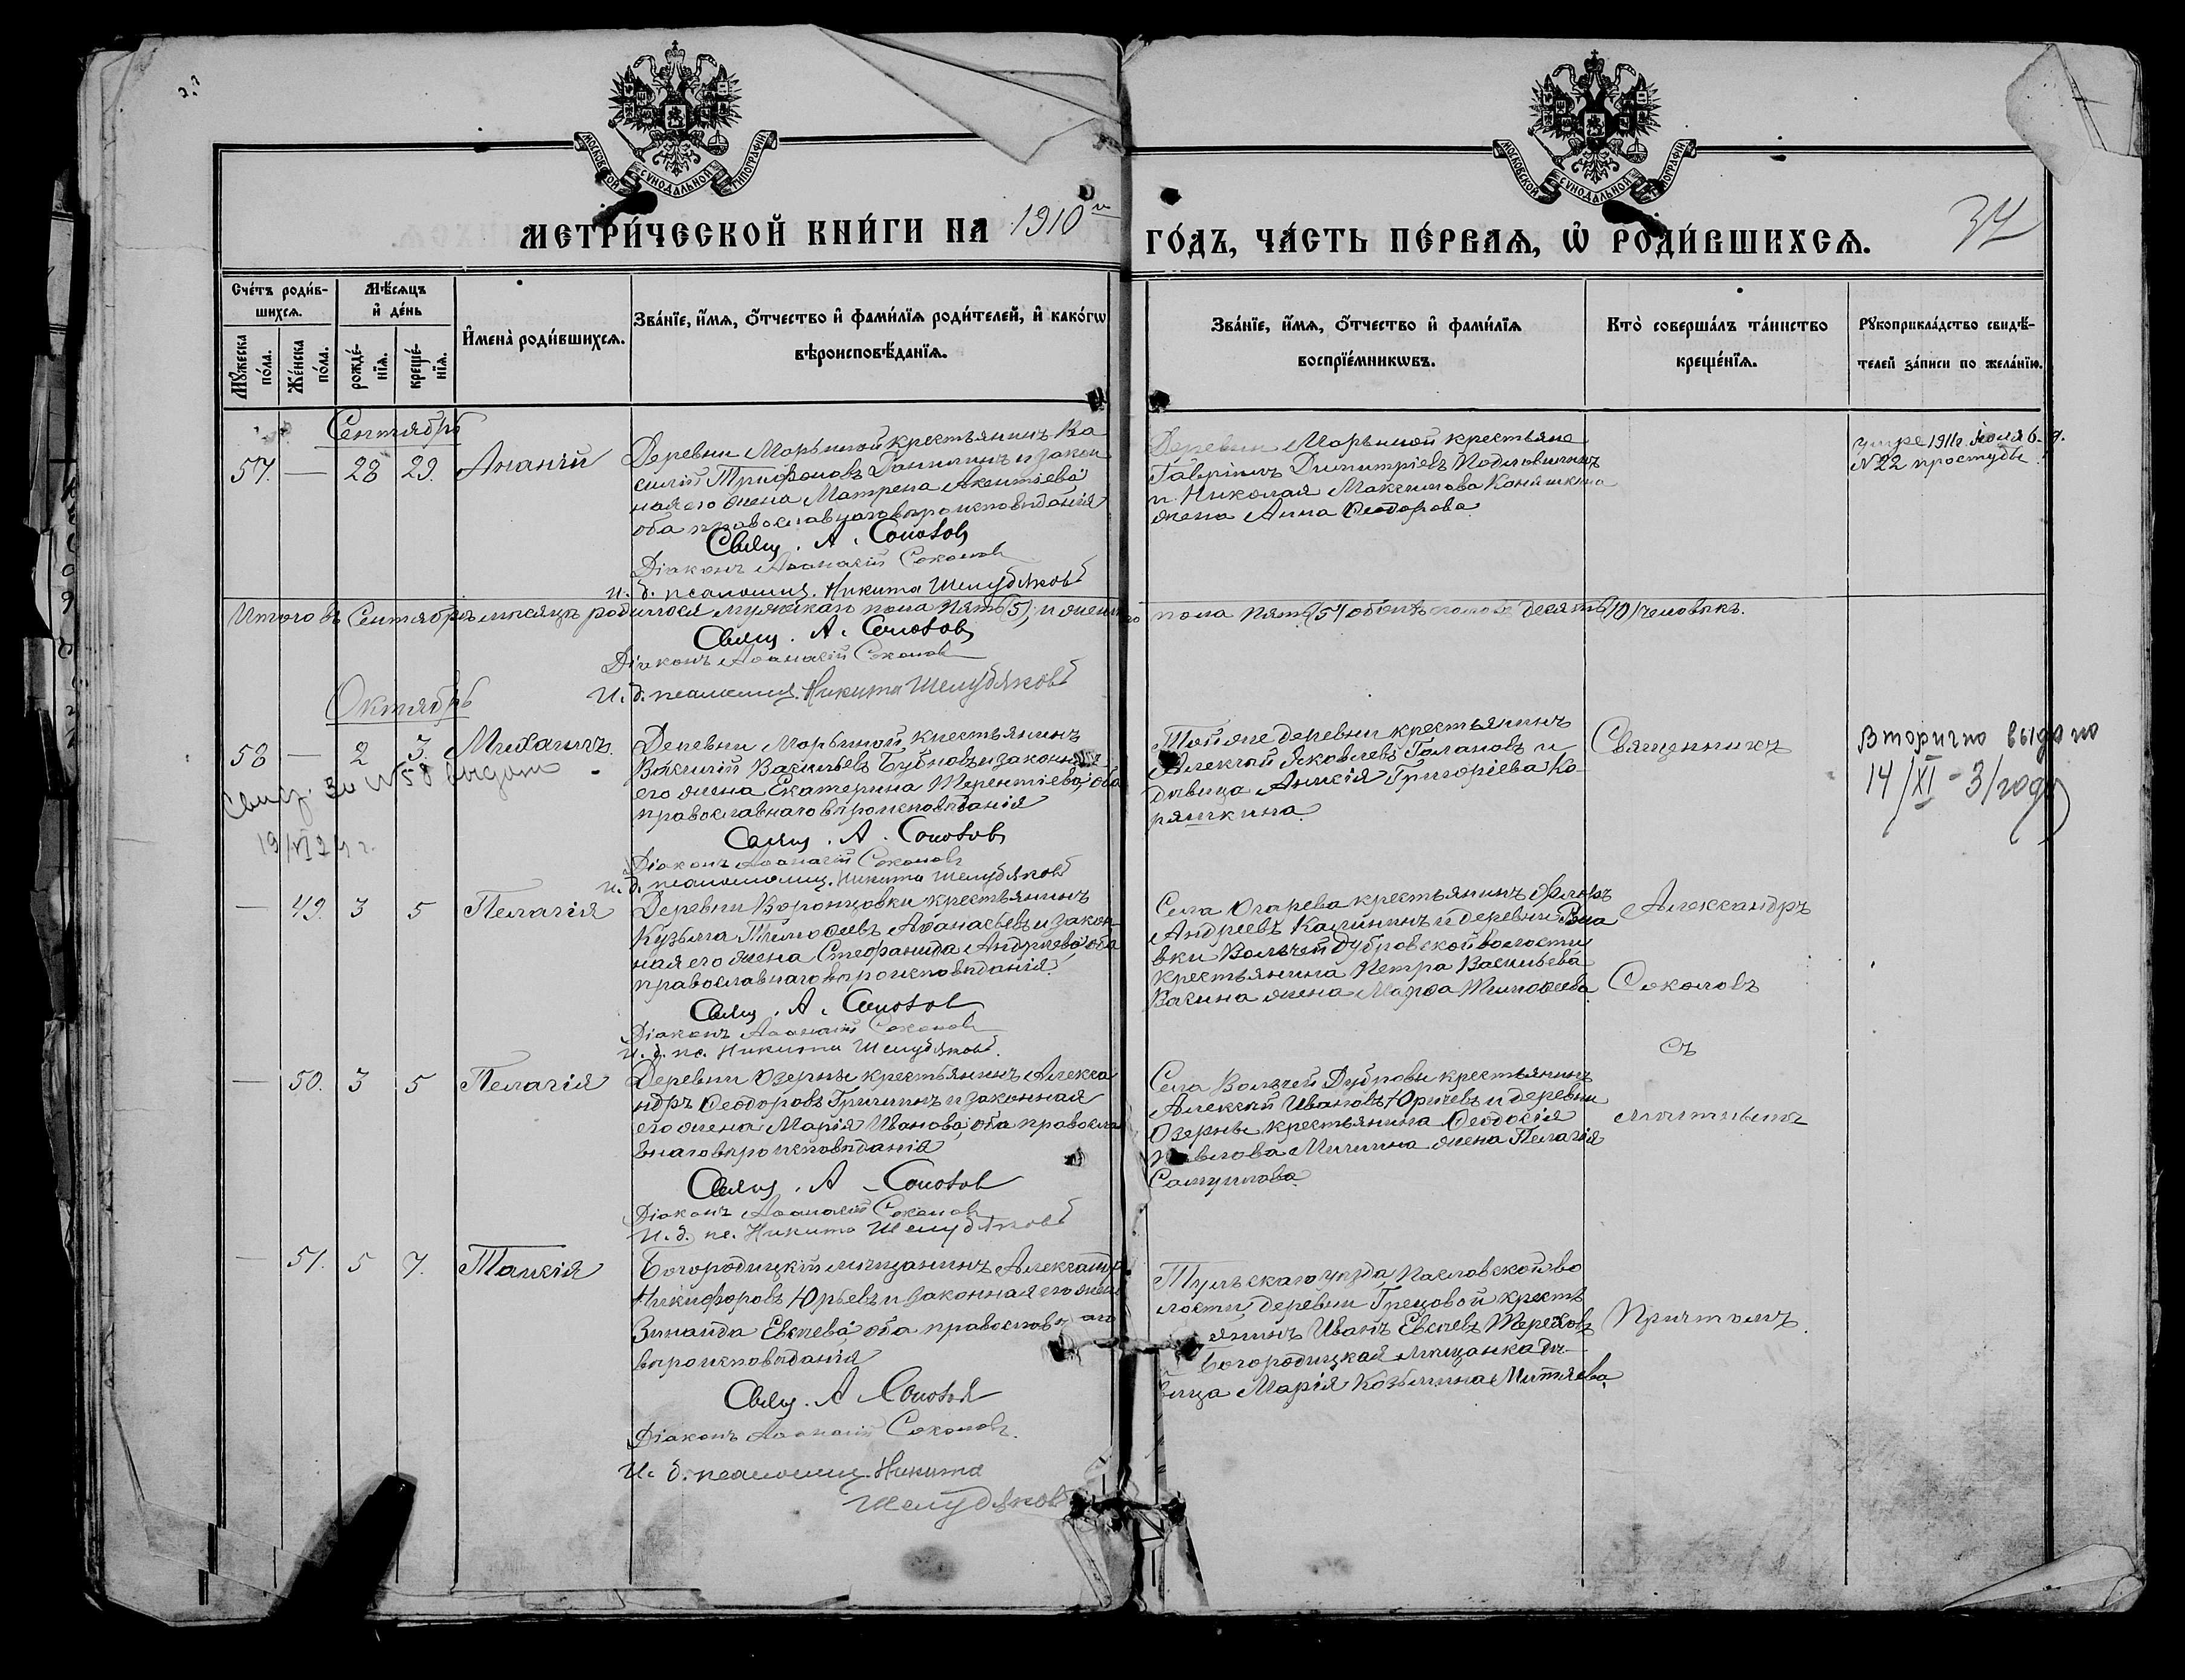 МОСКОВСКОЙ СѴНОДАЛЬНОЙ ТИПОГРАФІИ
МОСКОВСКОЙ СѴНОДАЛЬНОЙ ТИПОГРАФІИ
МЕТРИ́ЧЕСКОЙ КНИ́ГИ НА 1910 й
ГО́ДЪ, ЧА́СТЬ ПЕ́РВАѦ, Ѡ҆ РОДИ́ВШИХСѦ.
34
Сче́тъ роди́в-
шихсѧ.
Мꙋ́жеска по́ла.
Же́нска по́ла.
Мѣ́сѧцъ
и҆ де́нь
рожде́-
нїѧ.
креще́-
нїѧ.
И҆мена̀ роди́вшихсѧ.
Зва́нїе, и҆́мѧ, ѻ҆́тчество и҆ фами́лїѧ роди́телей, и҆ како́гѡ
вѣроисповѣ́данїѧ.
Зва́нїе, и҆́мѧ, ѻ҆́тчество и҆ фами́лїѧ
воспрїе́мникѡвъ.
Кто̀ соверша́лъ та́инство
креще́нїѧ.
Рꙋкоприкла́дство свидѣ́-
телей за́писи по жела́нїю.
Сентябрь
57. — 28 29. Ананій
Деревни Марьиной крестьянинъ Ва
силій Трифоновъ Данилинъ и закон
ная его жена Матрена Акентіева
оба православнаго вѣроисповѣданія
Свящ. А. Соколов
Діаконъ Аѳанасій Соколовъ
И. д. псаломщ. Никита Шелудяковъ
Деревни Марьиной крестьяне
Гавріилъ Димитріевъ
и Николая Максимова
жена Анна Ѳеодорова
умре 1911 г. Іюля 6 д.
№ 22 простуды
Итого въ Сентябрѣ мѣсяцѣ родилося мужскаго пола пять (5), и женскаго пола пять (5) обоихъ половъ десять (10) человѣкъ.
Свящ. А. Соколов
Діаконъ Аѳанасій Соколовъ
И. д. псаломщ. Никита Шелудяковъ
Октябрь
58 — 2 3. Михаилъ
Свид. за № 58 выдано
19/VI 24 г.
Деревни Марьиной, крестьянинъ
Василій Васильевъ Бубновъ и законная
его жена Екатерина Терентіева; оба
православнаго вѣроисповѣданія
Свящ. А. Соколов
Діаконъ Аѳанасій Соколовъ
И. д. псаломщ. Никита Шелудяковъ
Той же деревни крестьянинъ
Алексѣй Яковлевъ Галановъ и
дѣвица Анисія Григоріева Ко-
ряшкина
Вторично выдано
14/XI - 31 года
— 49. 3 5 Пелагія
Деревни Воронцовки крестьянинъ
Кузьма Тимоѳеевъ Аѳанасьевъ и закон
ная его жена Стефанида Андреева; оба
православнаго вѣроисповѣданія
Свящ. А. Соколов
Діаконъ Аѳанасій Соколовъ
И. д. пс. Никита Шелудяковъ.
Села Огарева крестьянинъ
Андреевъ Калининъ и деревни
вки Волчей Дубровской волости
крестьянина Петра Васильева
Васина жена Марѳа Тимоѳеева
— 50. 3 5 Пелагія
Деревни Озерны крестьянинъ Алекса
ндръ Ѳеодоровъ Гришинъ и законная
его жена Марія Иванова; оба правосла
внаго вѣроисповѣданія
Свящ. А. Соколов
Діаконъ Аѳанасій Соколовъ
И. д. пс. Никита Шелудяковъ
Села Волчей Дубровы крестьянинъ
Алексѣй Ивановъ Юричевъ и деревни
Озерны крестьянина Ѳеодосія
Павлова Мишина жена Пелагія
Самуилова.
— 51. 5 7. Таисія
Богородицкій мѣщанинъ Александръ
Никифоровъ Юрьевъ и законная его жена
Зинаида Евсеева; оба православнаго
вѣроисповѣданія
Свящ. А. Соколов
Діаконъ Аѳанасій Соколовъ.
И. д. псаломщ. Никита
Шелудяковъ
Тульскаго уѣзда, Павловской во
лости, деревни Грецовой кресть
янинъ Иванъ Евсеевъ Тереховъ
Богородицкая мѣщанка дѣ-
вица Марія Козьмина Митяева.
Священникъ
Александръ
Соколовъ
съ
мѣстнымъ
Причтомъ.